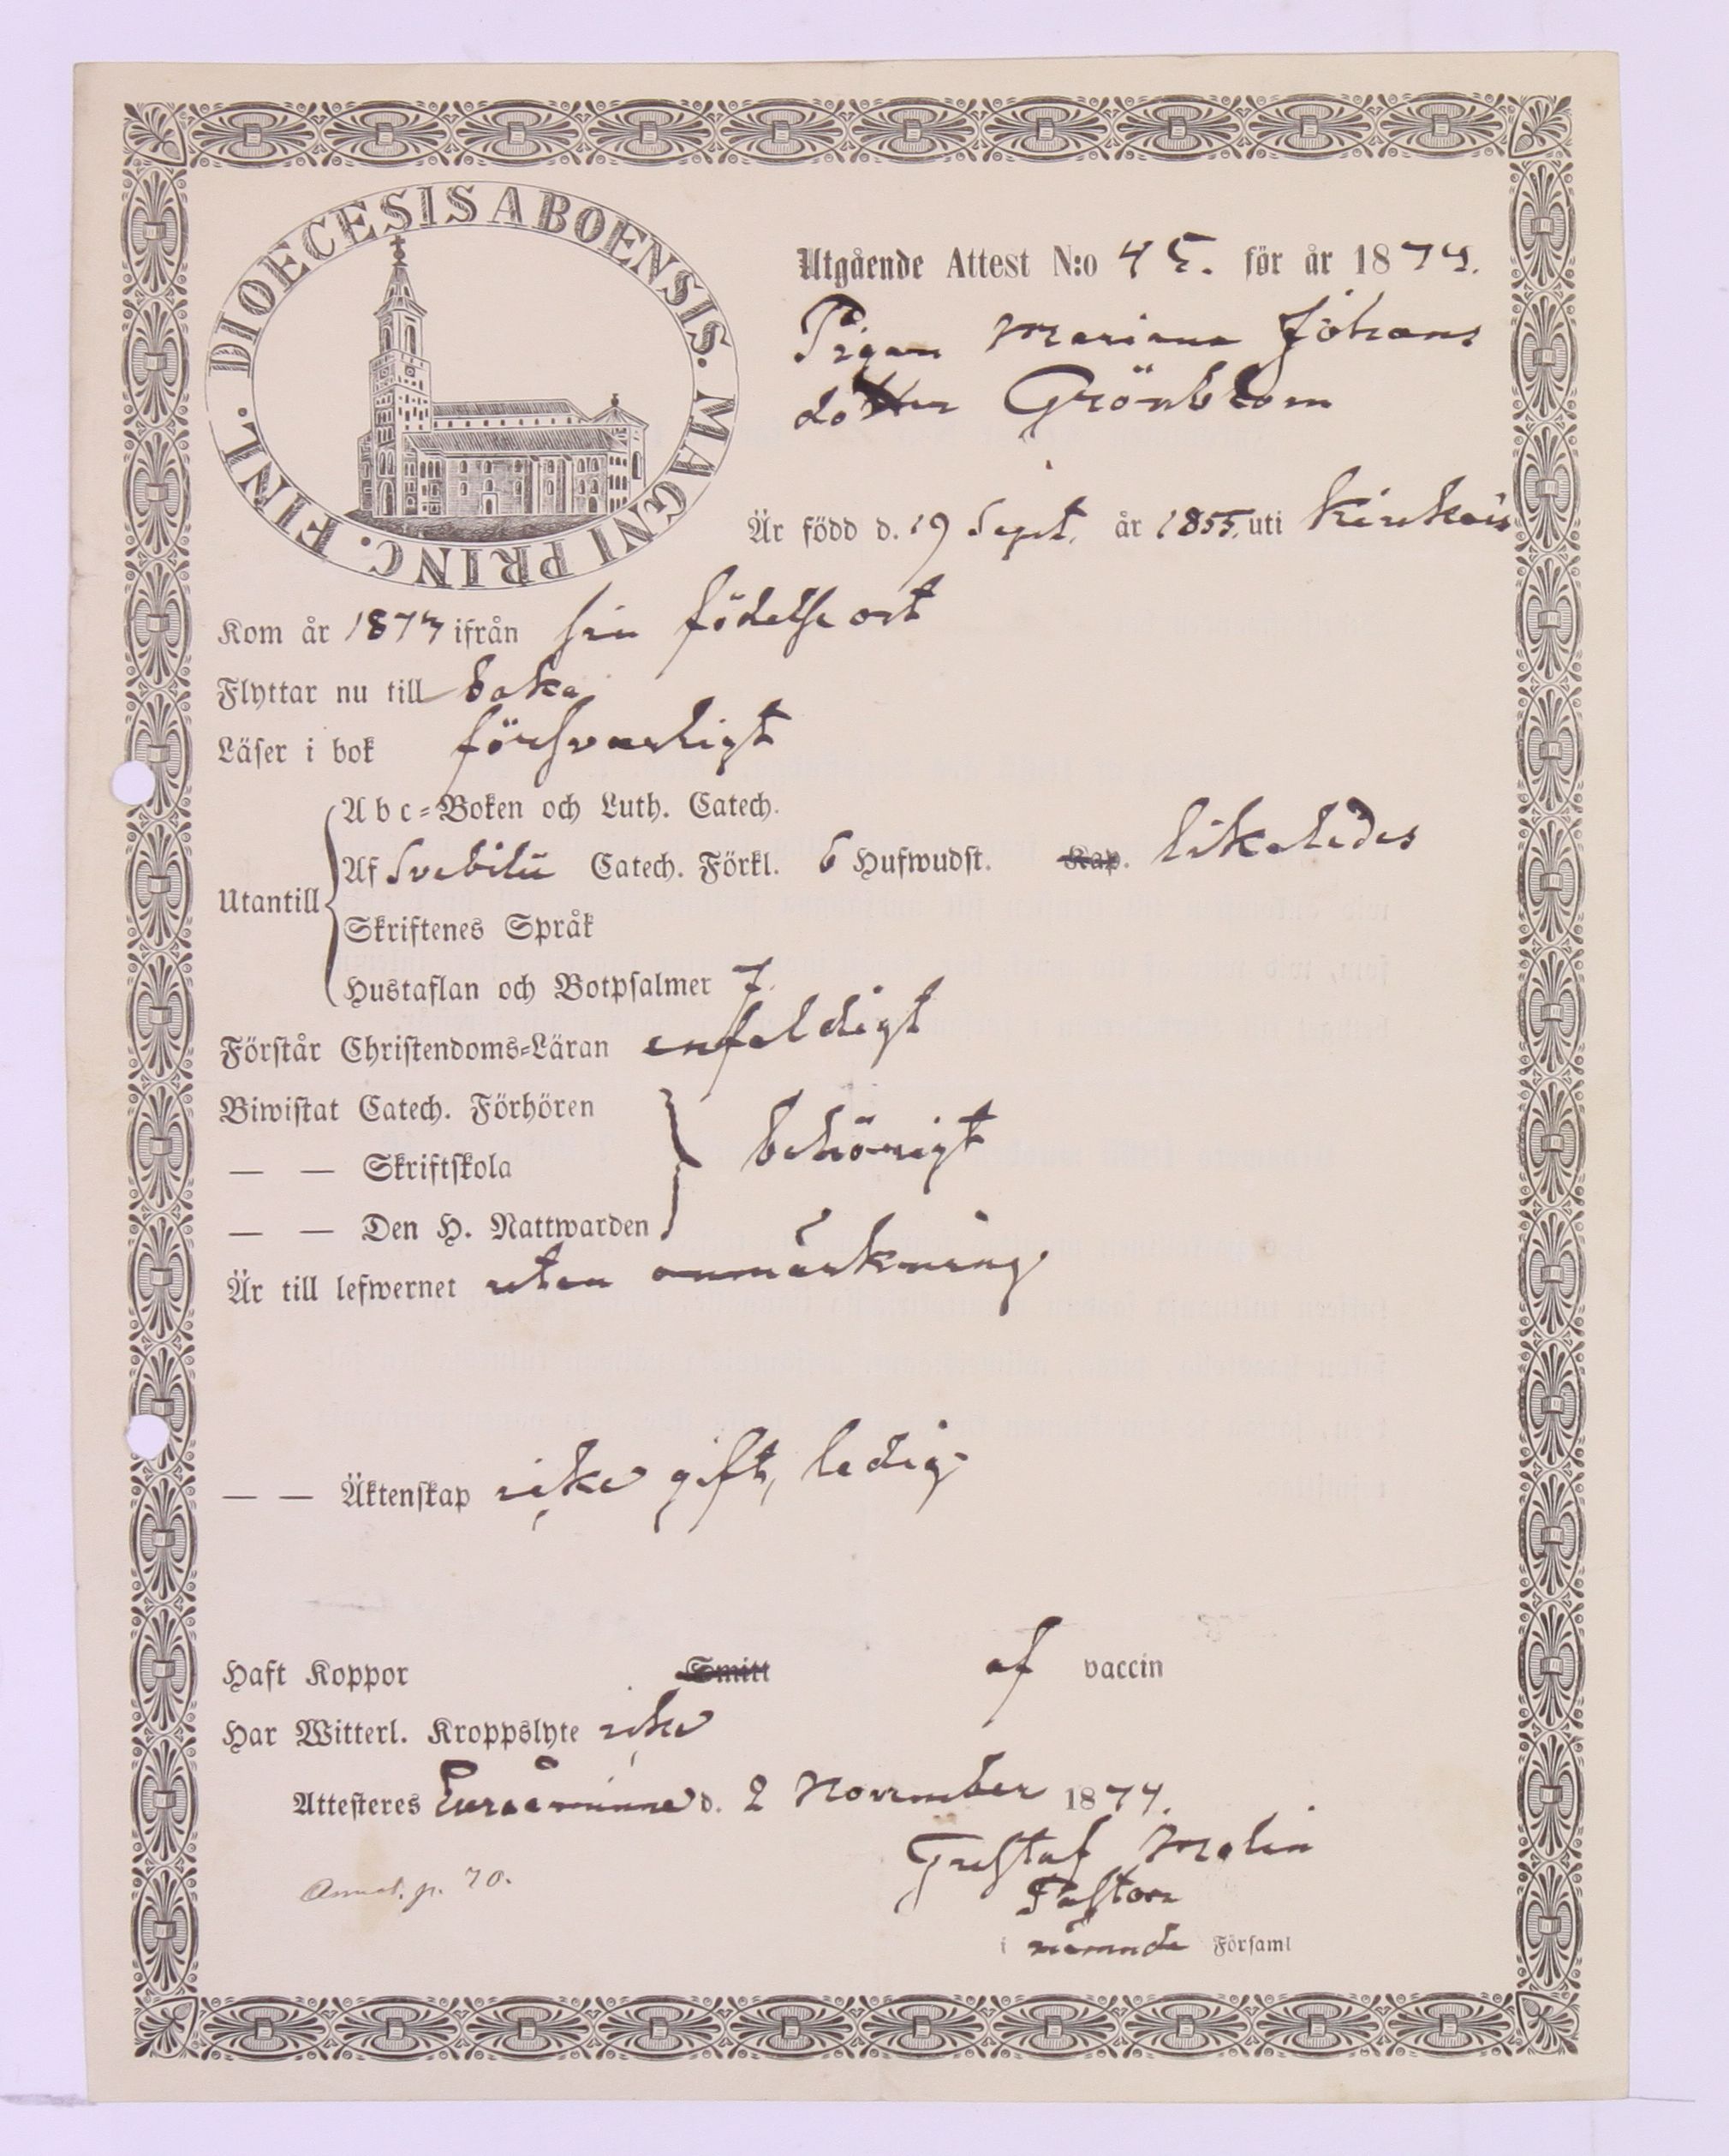 DIOECESIS ABOENSIS. MAGNI PRINC. FINL.
Utgående Attest N:o 45. för år 1874.
Pigan Mariana Johans
dotter Grönblom
Är född d. 19 Sept. år 1855. uti Kiukais
Kom år 1873 ifrån sin födelse ort
Flyttar nu till baka
Läser i bok försvarligt
Abc-Boken och Luth. Catech.
Utantill
Af Svebilii Catech. Förkl. 6 Hufwudst. Kap. likaledes
Skriftenes Språk
Hustaflan och Botpsalmer 7.
Förstår Christendoms-Läran enfaldigt
Biwistat Catech. Förhören
— — Skriftskola behörigt
— — Den H. Nattwarden
Är till lefwernet utan anmärkning
— — Äktenskap icke gift, ledig
Haft Koppor Smitt af vaccin
Har Witterl. Kroppslyte icke
Attesteres Euraåminne d. 2 November 1874.
Gustaf Molin
Pastor
Annot. p. 70.
i nämnde Församl